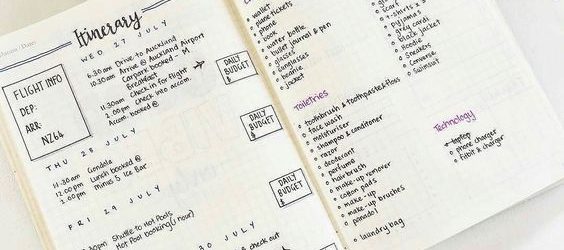 Itinerary
WED 27 JULY
FLIGHT INFO
DEP:
ARR:
NZ64
6.30am Drive to Auckland
10.30am Arrive @ Auckland Airport
Carpark booked - M
Breakfast
11.30am check in for flight
2.00pm Check into accom.
Accom. booked @
DAILY
BUDGET
$
THU 28 JULY
11.30am Gondola
12.00pm Lunch booked @
3.00pm minus 5 Ice Bar
DAILY
BUDGET
$
FRI 29 JULY
Shuttle to Hot Pools
Hot Pool booking (1 hour)
DAILY
BUDGET
$
30 JULY
check out
wallet
plane tickets
phone
book
water bottle
bullet journal & pen
glasses
sunglasses
beanie
jacket
scarf
t-shirts x
pyjamas
grey cardi
black jacket
Hoodie
Sneakers
Converse
Swimsuit
Toiletries
toothbrush & toothpaste & floss
face wash
moisturiser
shampoo & conditioner
razor
deodorant
perfume
hairbrush
make-up remover
cotton pads
make-up
make-up brushes
panadol
laundry bag
Technology
laptop
phone charger
Fitbit & charger